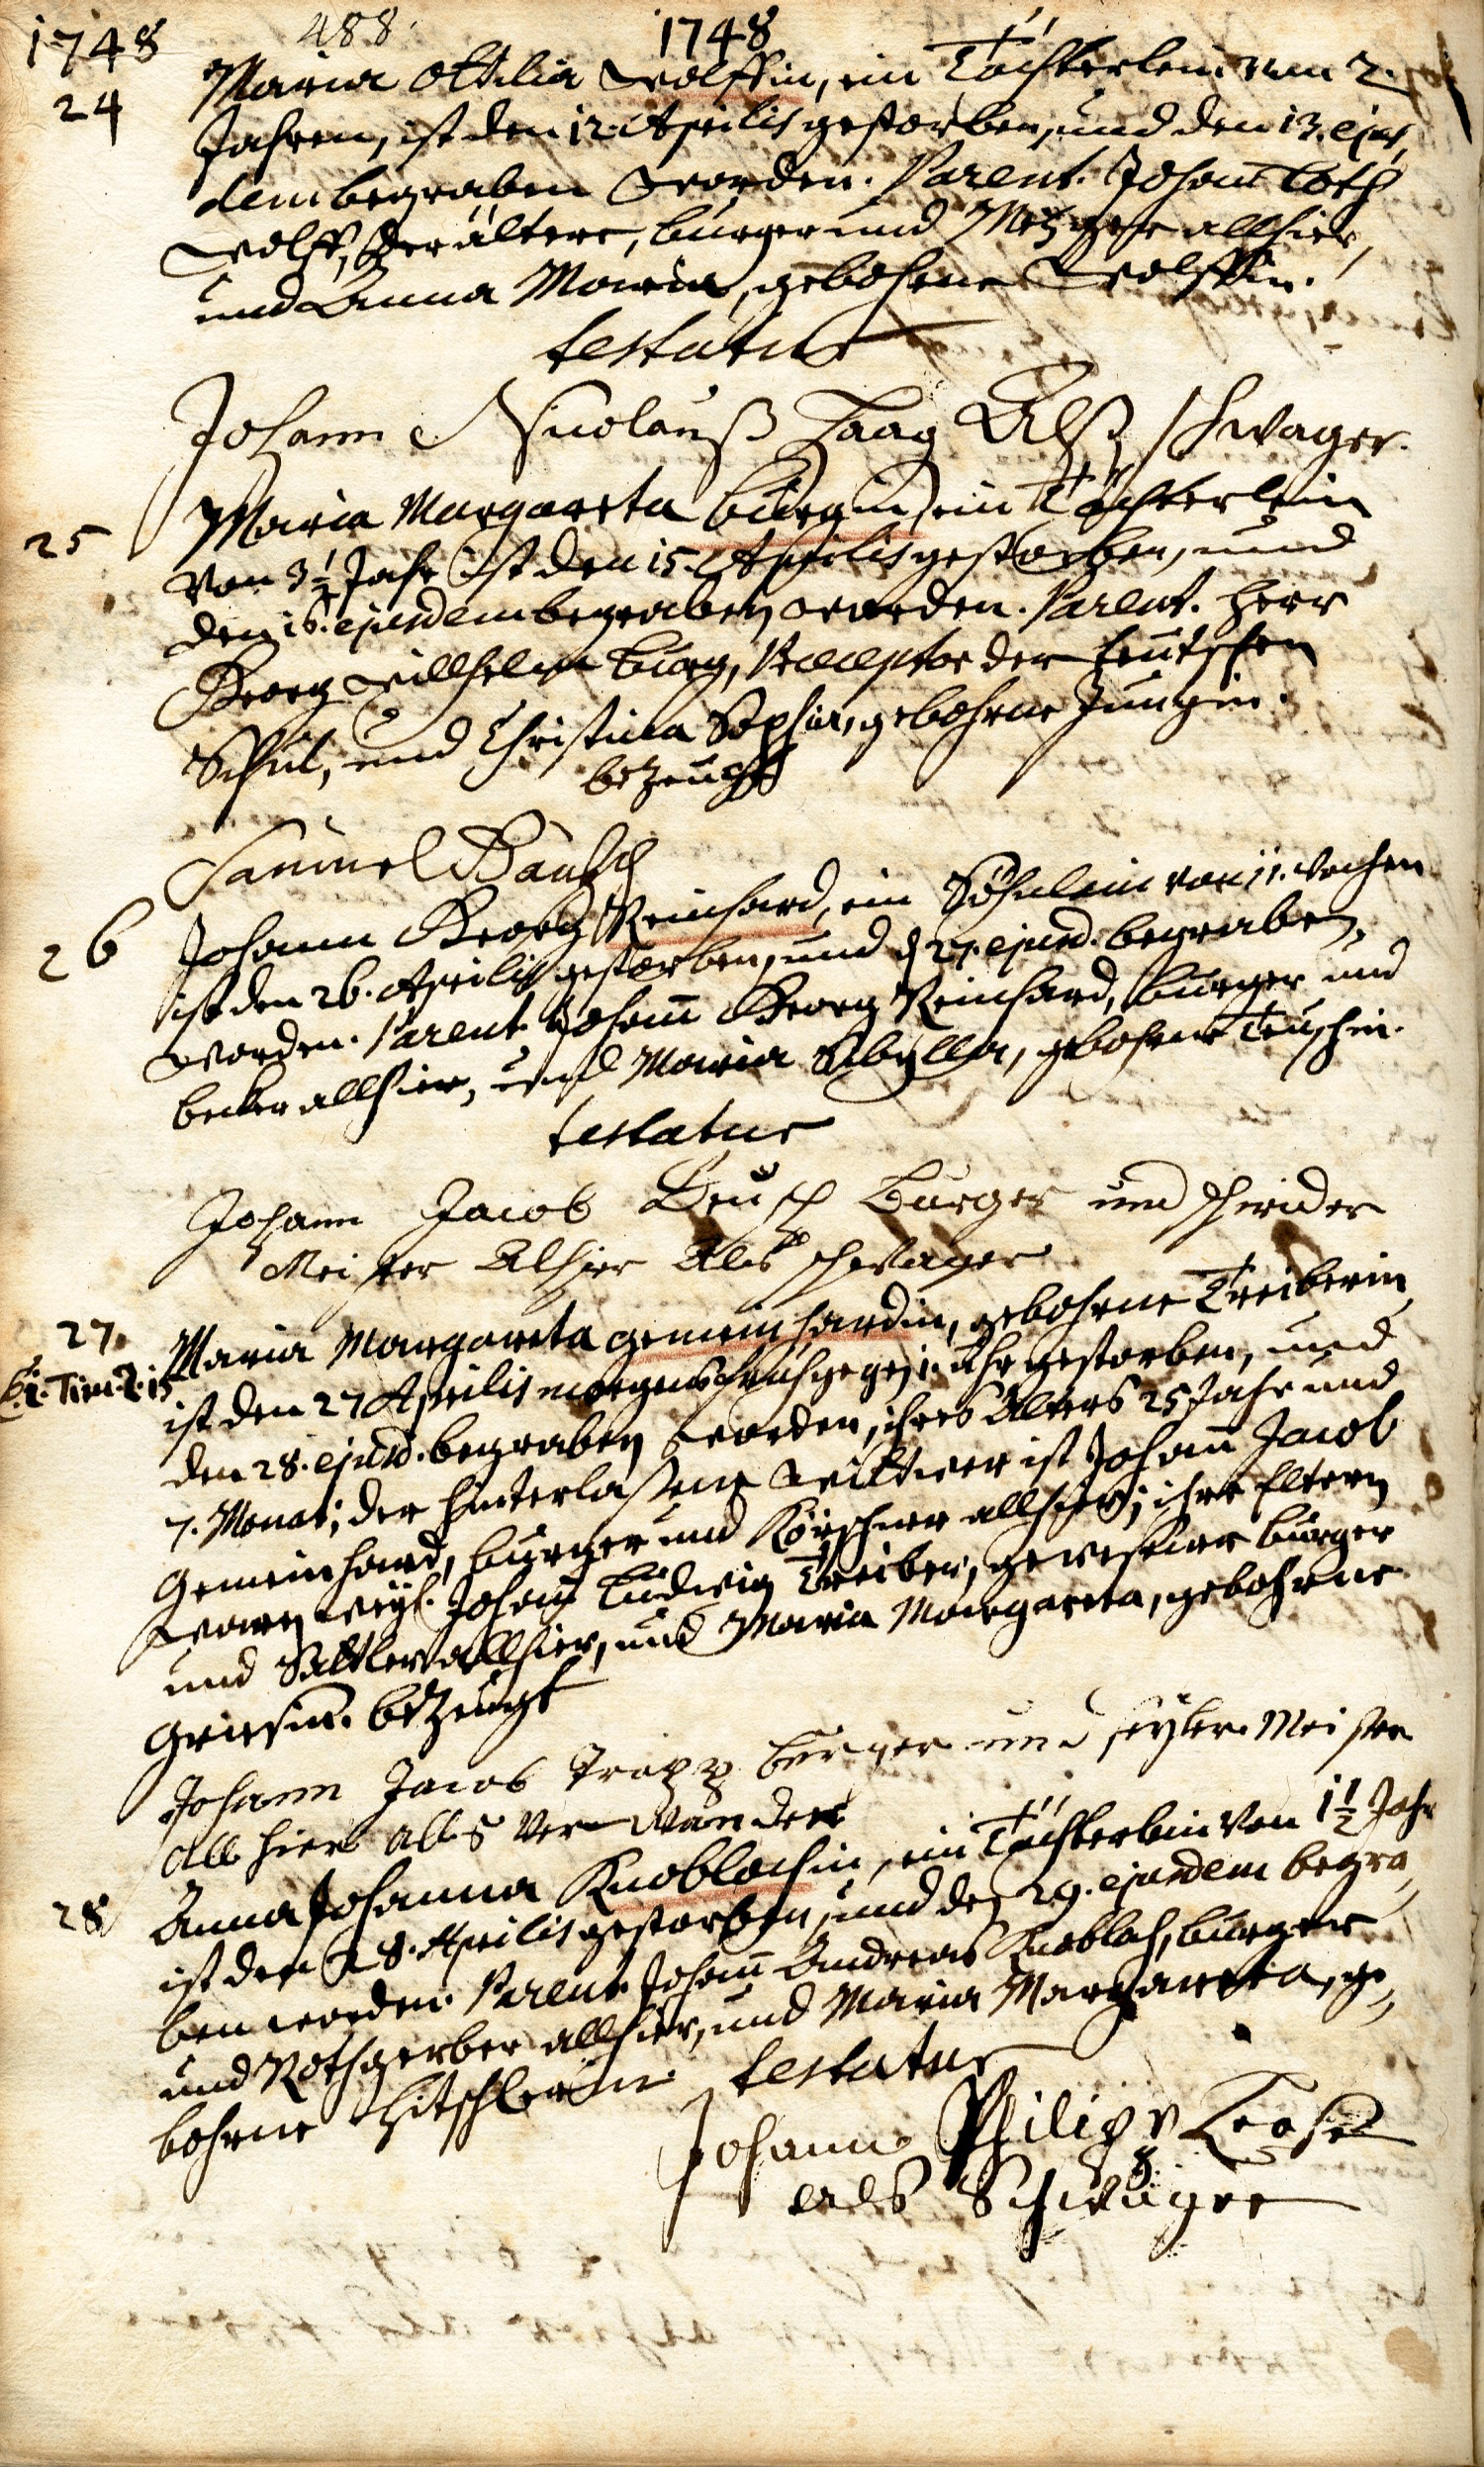 1748 488. 1748
24 Maria Ottilia Wolffin, ein Töchterlein von 2.
Jahren, ist den 12. Aprilis gestorben, und den 13. ejus¸
dem begraben worden. Parent. Johann
Wolff, der ältere, burger und Metzger allhier,
und Anna Maria, gebohrne Wolffin.
testatur
Johann Nicolauß Haag Alß schwager.
25 Maria Margareta Bürgin, ein Töchterlein
von 3½ Jahr ist den 15. Aprilis gestorben, und
den 16. ejusdem begraben worden. Parent. Herr
Georg Willhelm Bürg, Præceptor der teutschen
Schul, und Christina Sophia, gebohrne Jungin.
bezeugt
Samuel
26 Johann Georg Reinhard, ein Söhnlein von 11. wochen
ist den 26. Aprilis gestorben, und d 27. ejusd. begraben
worden. Parent. Johann Georg Reinhard, burger und
becker allhier, und Maria Sibylla, gebohrne Teuschin.
testatur
Johann Jacob Deusch Burger und schneider
Meister Alhier Als schwager
27. Maria Margareta Gemeinhardin, gebohrne Treiberin
2. Tim. 2. 15 ist den 27 Aprilis morgens fruh gegen 1. Uhr gestorben, und
den 28. ejusd. begraben worden, ihres Alters 25 Jahr und
7. Monat; der hinterlaßene Wittwer ist Johann Jacob
Gemeinhard, burger und Kürschner allhier; ihre Eltern
waren weyl. Johann Ludwig Treiber, gewesener burger
und Sattler allhier, und Maria Margareta, gebohrne
bezeugt
Johann Jacob Trapp burger und seyler Meister
all hier alls Ver wander
28 Anna Johanna Knoblochin, ein Töchterlein von 1½ Jahr
ist den 28. Aprilis gestorben, und den 29. ejusdem begra¸
ben worden. Parent. Johann Andreas Knobloch, burger
und Rothgerber allhier, und Maria Margareta, ge¸
bohrne Hitschlerin. testatur
Johann Philipp
als Schwager